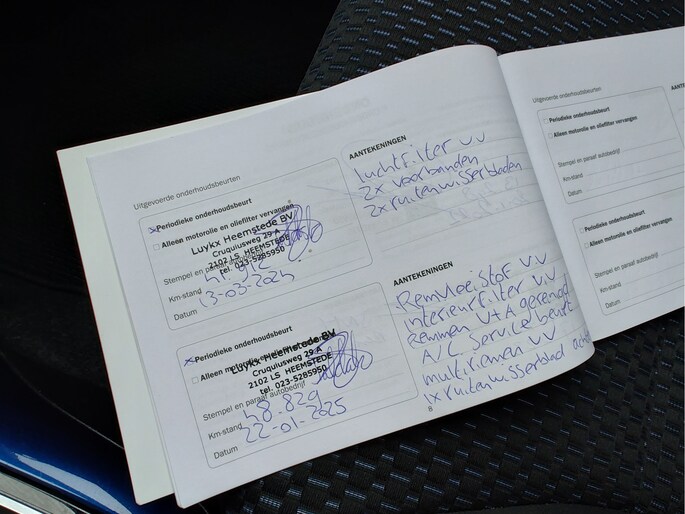 Uitgevoerde onderhoudsbeurten
Periodieke onderhoudsbeurt
Alleen motorolie en oliefilter vervangen
Luykx Heemstede BV
Cruquiusweg 29 A
2102 LS HEEMSTEDE
tel. 023-5285950
Stempel en paraaf autobedrijf
Km-stand
13-03-2024
Datum
AANTEKENINGEN
luchtfilter v.v
2x voorbanden
2x ruitenwisserbladen
Periodieke onderhoudsbeurt
Alleen
Luykx Heemstede BV
Cruquiusweg 29 A
2102 LS HEEMSTEDE
tel. 023-5285950
Stempel en paraaf autobedrijf
48.829
Km-stand
22-01-2025
Datum
AANTEKENINGEN
Remvloeistof v.v
interieurfilter v.v
Remmen V+A gereinigd
A/C Service beurt
multiriemen v.v
1x ruitenwisserblad
8
Uitgevoerde onderhoudsbeurten
Periodieke onderhoudsbeurt
Alleen motorolie en oliefilter vervangen
Stempel en paraaf autobedrijf
Km-stand
Datum
Periodieke onderhoudsbeurt
Alleen motorolie en oliefilter vervangen
Stempel en paraaf autobedrijf
Km-stand
Datum